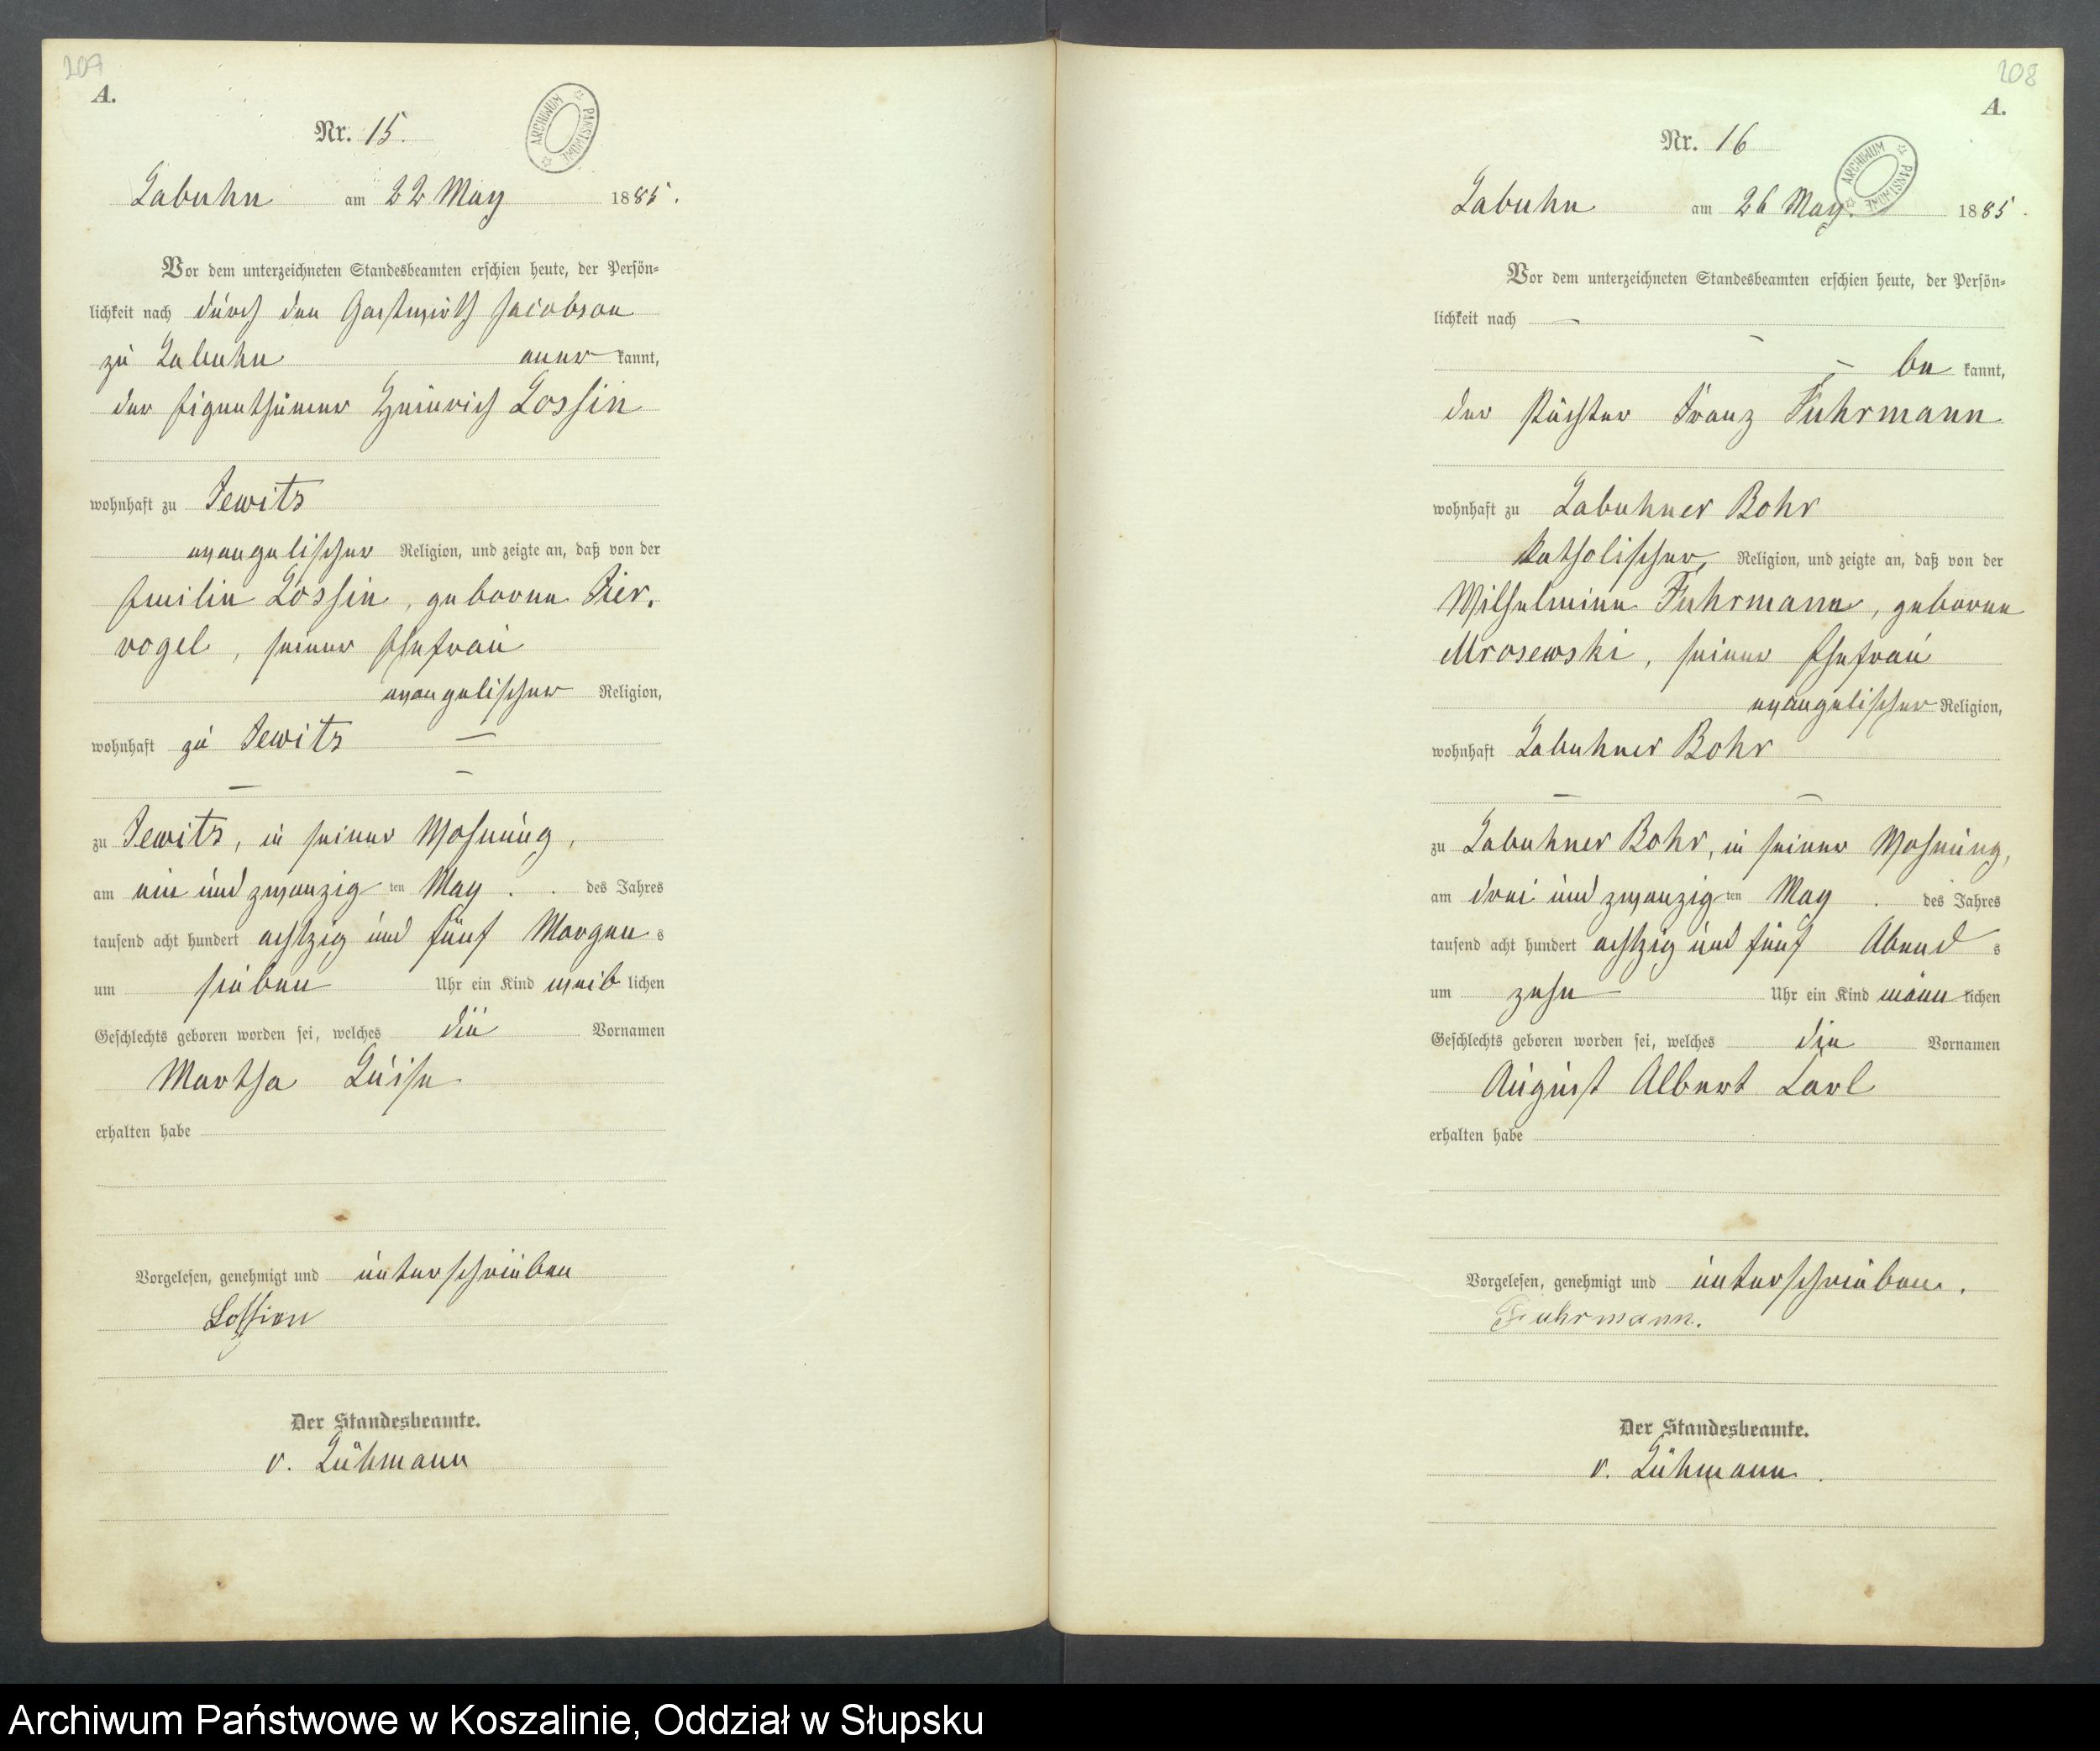 207
A.
Nr. 15.
ARCHIWUM PAŃSTWOWE
Labuhn am 22 May 1885.
Vor dem unterzeichneten Standesbeamten erschien heute, der Persön-
lichkeit nach durch den Gastwirth Jacobson
zu Labuhn aner kannt,
der Eigenthümer Heinrich Lossin
wohnhaft zu Jewitz
evangelischer Religion, und zeigte an, daß von der
Emilie Lossin, geborene Zier,
vogel, seiner Ehefrau
evangelischer Religion,
wohnhaft zu Jewitz —
— —
zu Jewitz, in seiner Wohnung,
am ein und zwanzig ten May . . des Jahres
tausend acht hundert achtzig und fünf Morgen s
um sieben Uhr ein Kind weib lichen
Geschlechts geboren worden sei, welches die Vornamen
Martha Luise
erhalten habe
Vorgelesen, genehmigt und unterschrieben
Lossien
Der Standesbeamte.
v. Lühmann
208
A.
Nr. 16
ARCHIWUM PAŃSTWOWE
Labuhn am 26 May. 1885.
Vor dem unterzeichneten Standesbeamten erschien heute, der Persön-
lichkeit nach —
— — be kannt,
der Pächter Franz Fuhrmann
wohnhaft zu Labuhner Bohr
katholischer, Religion, und zeigte an, daß von der
Wilhelmine Fuhrmann, geborene
Mrosewski, seiner Ehefrau
evangelischer Religion,
wohnhaft Labuhner Bohr
— —
zu Labuhner Bohr, in seiner Wohnung,
am drei und zwanzig ten May . des Jahres
tausend acht hundert achtzig und fünf Abend s
um zehn Uhr ein Kind männ lichen
Geschlechts geboren worden sei, welches die Vornamen
August Albert Carl
erhalten habe
Vorgelesen, genehmigt und unterschrieben.
Fuhrmann.
Der Standesbeamte.
v. Lühmann.
Archiwum Państwowe w Koszalinie, Oddział w Słupsku